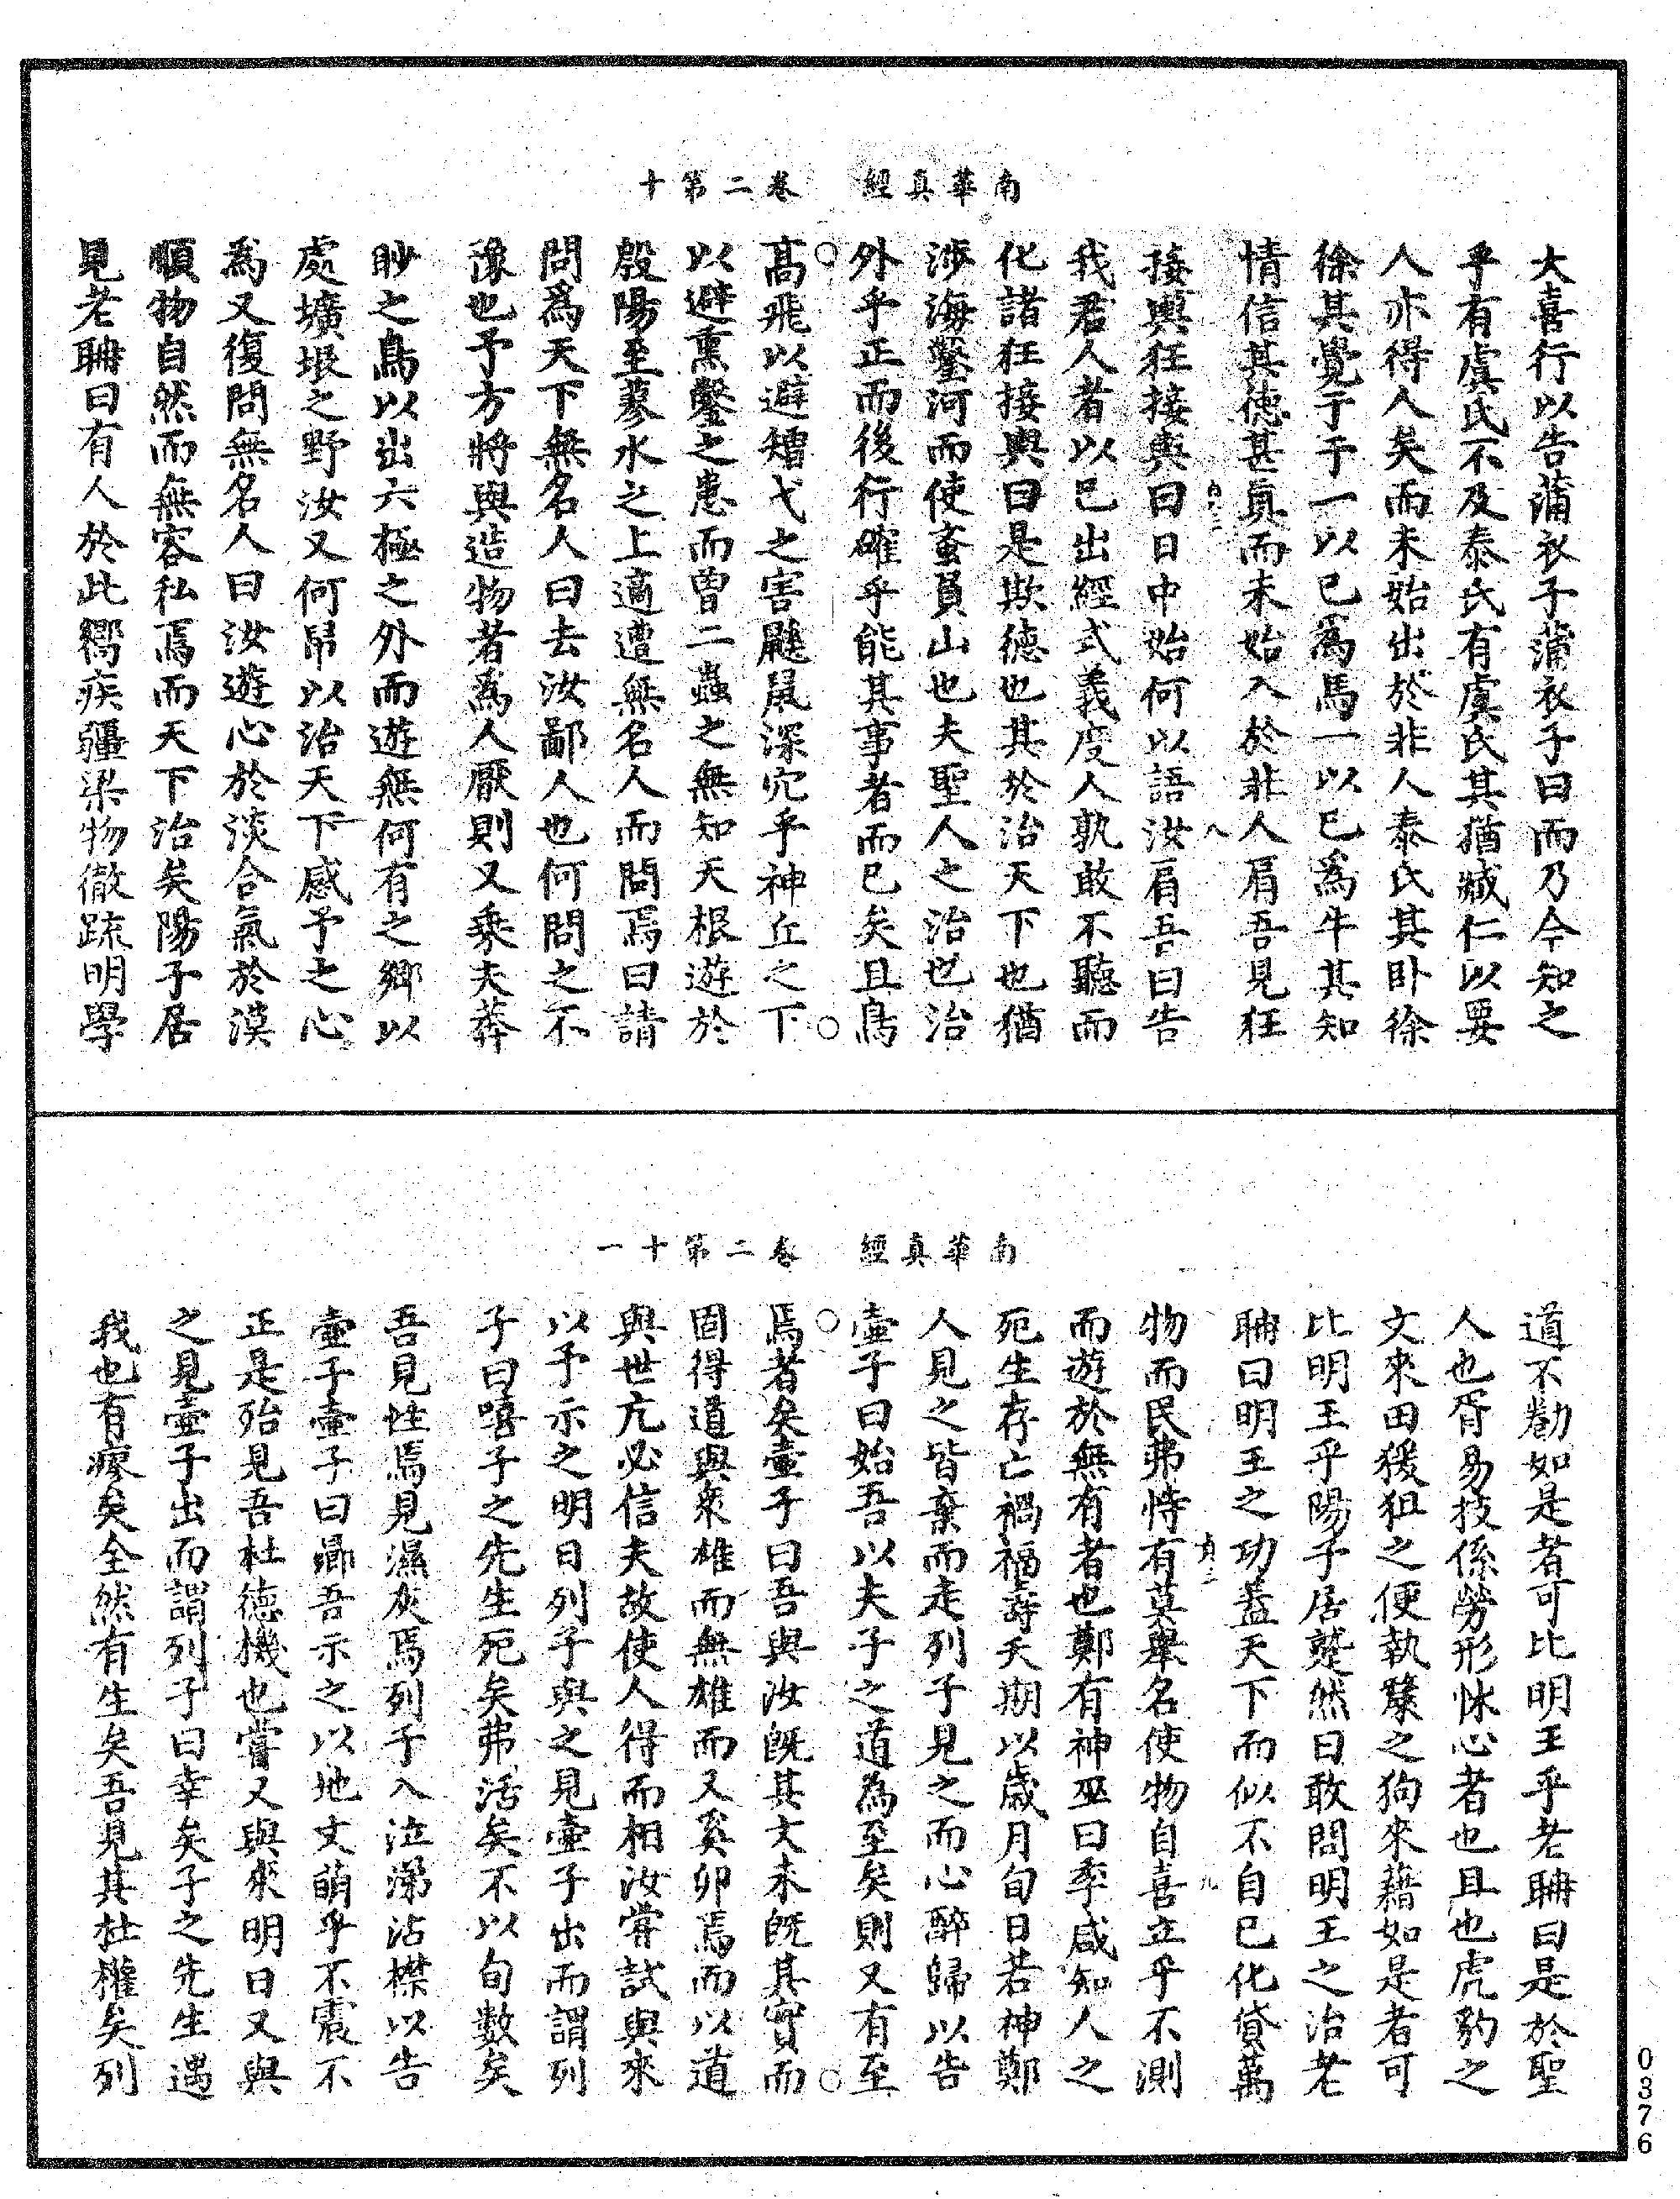 南華真經　卷二第十
大喜行以告蒲衣子蒲衣子曰而乃今知之
乎有虞氏不及泰氏有虞氏其猶臧仁以要
人亦得人矣而未始出於非人泰氏其臥徐
徐其覺于于一以已為馬一以已爲牛其知
情信其德甚真而未始入於非人肩吾見狂
接輿狂接輿曰日中始何以語汝肩吾曰告
我君人者以已出經式義度人孰敢不聽而
化諸狂接輿曰是欺德也其於治天下也猶
涉海鑿河而使蚉負山也夫聖人之治也治
外乎正而後行確乎能其事者而已矣且鳥
高飛以避矰弋之害鼷鼠深穴乎神丘之下
以避熏鑿之患而曾二蟲之無知天根遊於
殷陽至蓼水之上適遭無名人而問焉曰請
問爲天下無名人曰去汝鄙人也何問之不
豫也予方將與造物者為人厭則又乘夫莽
眇之鳥以出六極之外而遊無何有之鄉以
處壙埌之野汝又何帠以治天下感予之心
為又復問無名人曰汝遊心於淡合氣於漠
順物自然而無容私焉而天下治矣陽子居
見老聃曰有人於此嚮疾彊梁物徹疏明學
南華真經　卷二第十一
道不勌如是者可比明王乎老聃曰是於聖
人也胥易技係勞形怵心者也且也虎豹之
文來田猨狙之便執斄之狗來藉如是者可
比明王乎陽子居蹵然曰敢問明王之治老
聃曰明王之功蓋天下而似不自已化貸萬
物而民弗恃有莫舉名使物自喜立乎不測
而遊於無有者也鄭有神巫曰季咸知人之
死生存亡禍福壽夭期以歲月旬日若神鄭
人見之皆棄而走列子見之而心醉歸以告
壺子曰始吾以夫子之道為至矣則又有至
焉者矣壺子曰吾與汝既其文未既其實而
固得道與衆雌而無雄而又奚卵焉而以道
與世亢必信夫故使人得而相汝嘗試與來
以予示之明日列子與之見壺子出而謂列
子曰嘻子之先生死矣弗活矣不以旬數矣
吾見怪焉見濕灰焉列子入泣涕沾襟以告
壺子壺子曰鄉吾示之以地文萌乎不震不
正是殆見吾杜德機也嘗又與來明日又與
之見壺子出而謂列子曰幸矣子之先生遇
我也有瘳矣全然有生矣吾見其杜權矣列
0376